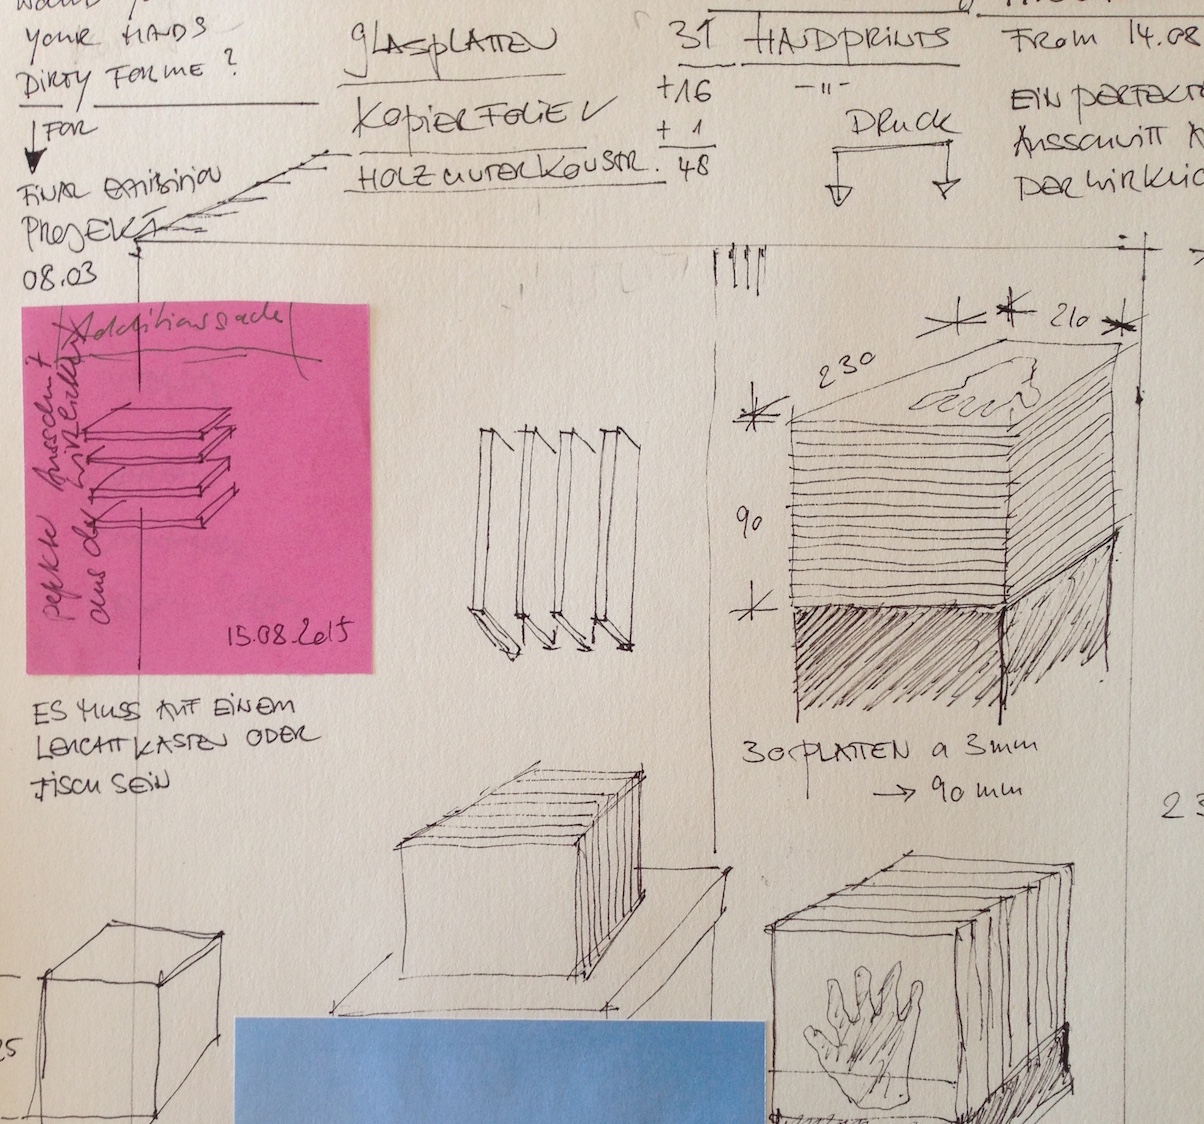 YOUR HANDS
DIRTY FOR ME ?
FOR
FINAL EXHIBITION
PROJEKT
08.03
GLASPLATTEN
KOPIERFOLIE
HOLZUNTERKONSTR.
31 HANDPRINTS
+16 -"-
+ 1
48
DRUCK
FROM 14.08
EIN PERFEKTE
AUSSCHNITT A
DER WIRKLIC
Ausschnitt
aus der Wirklichkeit
15.08.2015
ES MUSS AUF EINEM
LEUCHTKASTEN ODER
TISCH SEIN
210
230
90
30 PLATTEN a 3mm
→ 90 mm
23
25